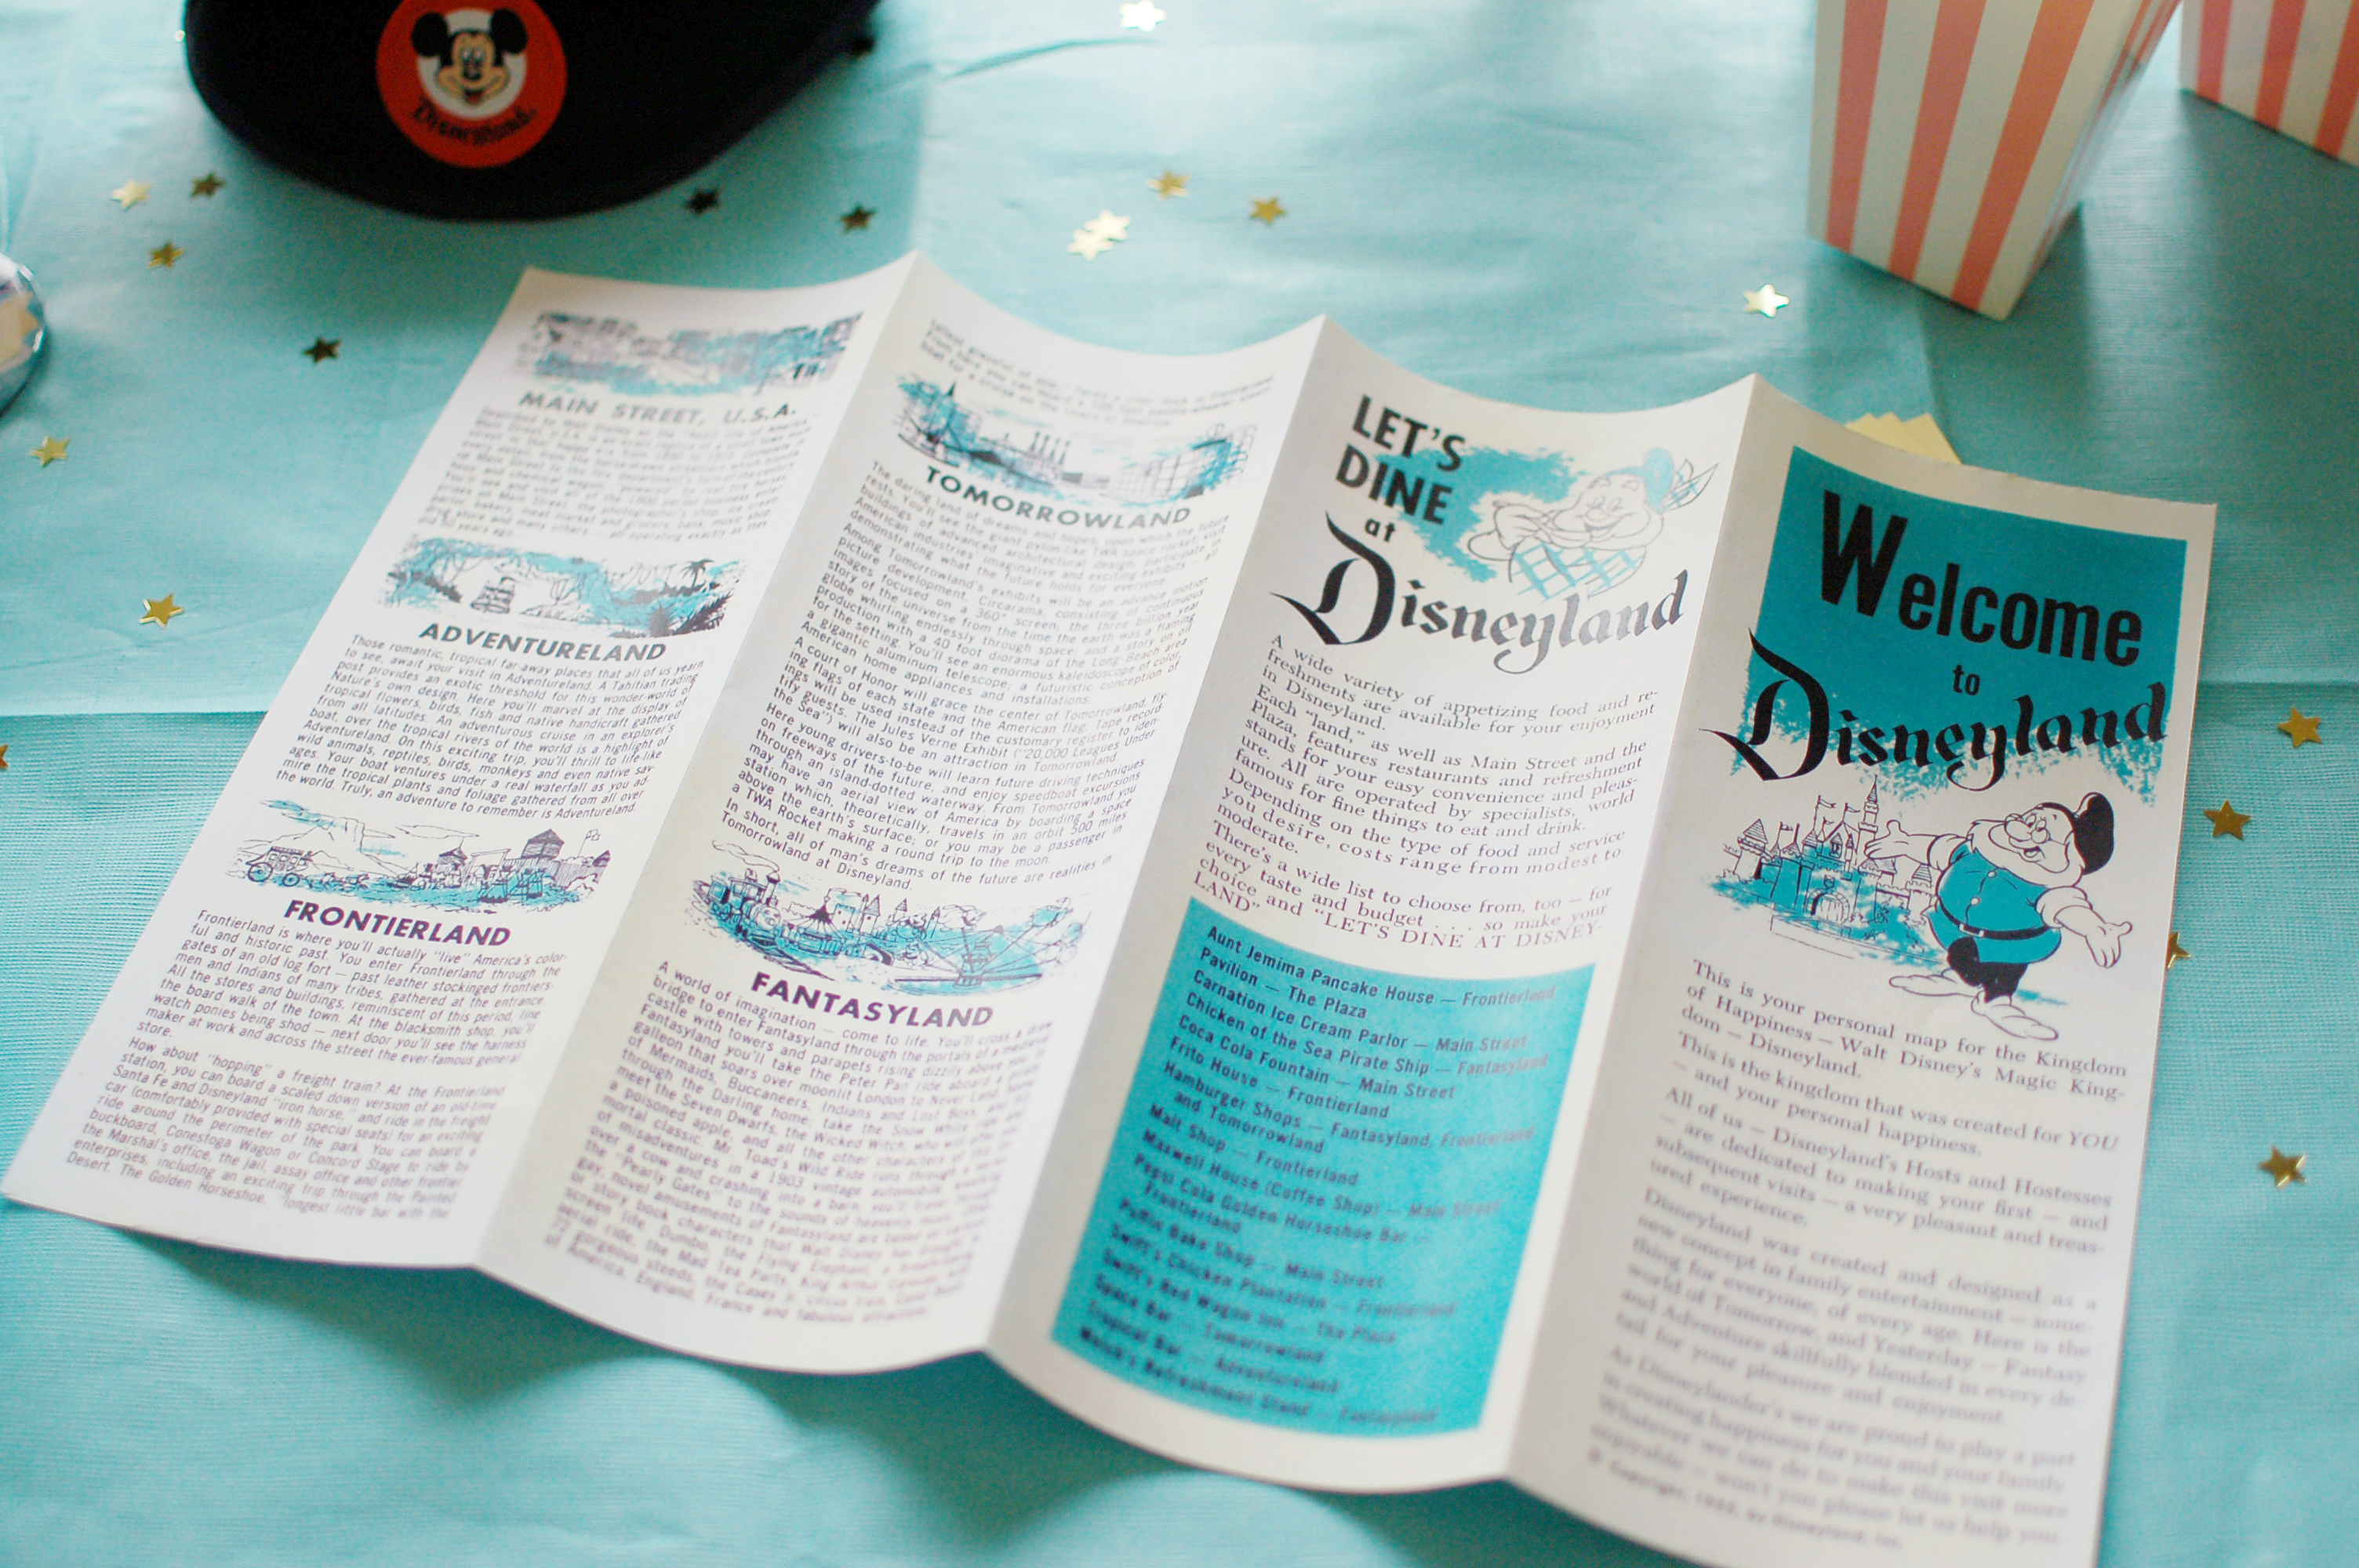 Disneyland
MAIN STREET, U.S.A.
ADVENTURELAND
Those romantic, tropical far-away places that all of us yearn
to see, await your visit in Adventureland. A Tahitian trading
post provides an exotic threshold for this wonder-world of
Nature's own design. Here you'll marvel at the display of
tropical flowers, birds, fish and native handicraft gathered
from all latitudes. An adventurous cruise in an explorer's
boat, over the tropical rivers of the world is a highlight of
Adventureland. On this exciting trip, you'll thrill to life-like
wild animals, reptiles, birds, monkeys and even native sav-
ages. Your boat ventures under a real waterfall as you ad-
mire the tropical plants and foliage gathered from all over
the world. Truly, an adventure to remember is Adventureland.
FRONTIERLAND
Frontierland is where you'll actually "live" America's color-
ful and historic past. You enter Frontierland through the
gates of an old log fort — past leather stockinged frontiers-
men and Indians of many tribes, gathered at the entrance.
All the stores and buildings, reminiscent of this period, line
the board walk of the town. At the blacksmith shop, you'll
watch ponies being shod — next door you'll see the harness
maker at work and across the street the ever-famous general
store.
How about "hopping" a freight train? At the Frontierland
station, you can board a scaled down version of an old-time
Santa Fe and Disneyland "iron horse," and ride in the freight
car (comfortably provided with special seats) for an exciting
ride around the perimeter of the park. You can board a
buckboard, Conestoga Wagon or Concord Stage to ride by
the Marshal's office, the jail, assay office and other frontier
enterprises, including an exciting trip through the Painted
Desert. The Golden Horseshoe, "longest little bar with the
TOMORROWLAND
The daring land of dreams and hopes, upon which the future
rests. You'll see the giant pylon-like TWA space rocket, visit
buildings of advanced architectural design, participate in
American industries' imaginative and exciting exhibits — all
demonstrating what the future holds for everyone.
Among Tomorrowland's exhibits will be an advance motion
picture development, Circarama, consisting of continuous
images focused on a 360° screen; the three billion year
story of the universe from the time the earth was a flaming
globe whirling endlessly through space; and a story on oil
production with a 40 foot diorama of the Long Beach area
for the setting. You'll see an enormous kaleidoscope of color,
a gigantic aluminum telescope; a futuristic conception of
American home appliances and installations.
A court of Honor will grace the center of Tomorrowland, fly-
ing flags of each state and the American flag. Tape record-
ings will be used instead of the customary register to iden-
tify guests. The Jules Verne Exhibit ("20,000 Leagues Under
the Sea") will also be an attraction in Tomorrowland.
Here young drivers-to-be will learn future driving techniques
on freeways of the future, and enjoy speedboat excursions
through an island-dotted waterway. From Tomorrowland you
may have an aerial view of America by boarding a space
station which, theoretically, travels in an orbit 500 miles
above the earth's surface; or you may be a passenger in
a TWA Rocket making a round trip to the moon.
In short, all of man's dreams of the future are realities in
Tomorrowland at Disneyland.
FANTASYLAND
A world of imagination — come to life. You'll cross a draw
bridge to enter Fantasyland through the portals of a medieval
castle with towers and parapets rising dizzily above you. In
Fantasyland you'll take the Peter Pan ride aboard a pirate
galleon that soars over moonlit London to Never Land, home
of Mermaids, Buccaneers, Indians and Lost Boys, and
through the Darling home; take the Snow White ride and
meet the Seven Dwarfs, the Wicked Witch, who will offer
a poisoned apple, and all the other characters of this
mortal classic. Mr. Toad's Wild Ride runs through a series
of misadventures in a 1903 vintage automobile, knocking
over a cow and crashing into a barn, you'll travel through
the "Pearly Gates" to the sounds of heavenly music. Other
gay, novel amusements of Fantasyland are based on
or story book characters that Walt Disney has brought to
screen life. Dumbo, the Flying Elephant, a breath-taking
aerial ride, the Mad Tea Party, King Arthur Carousel with
72 gorgeous steeds, the Casey Jr. Circus train, Canal Boats
of America, England, France and fabulous attractions.
LET'S
DINE
at
Disneyland
A wide variety of appetizing food and re-
freshments are available for your enjoyment
in Disneyland.
Each "land," as well as Main Street and the
Plaza, features restaurants and refreshment
stands for your easy convenience and pleas-
ure. All are operated by specialists, world
famous for fine things to eat and drink.
Depending on the type of food and service
you desire, costs range from modest to
moderate.
There's a wide list to choose from, too — for
every taste and budget . . . so make your
choice and "LET'S DINE AT DISNEY-
LAND"
Aunt Jemima Pancake House — Frontierland
Pavilion — The Plaza
Carnation Ice Cream Parlor — Main Street
Chicken of the Sea Pirate Ship — Fantasyland
Coca Cola Fountain — Main Street
Frito House — Frontierland
Hamburger Shops — Fantasyland, Frontierland
and Tomorrowland
Malt Shop — Frontierland
Maxwell House (Coffee Shop) — Main Street
Pepsi Cola Golden Horseshoe Bar —
Frontierland
Puffin Bake Shop — Main Street
Swift's Chicken Plantation — Frontierland
Swift's Red Wagon Inn — The Plaza
Space Bar — Tomorrowland
Tropical Bar — Adventureland
Welch's Refreshment Stand — Fantasyland
Welcome
to
Disneyland
This is your personal map for the Kingdom
of Happiness — Walt Disney's Magic King-
dom — Disneyland.
This is the kingdom that was created for YOU
— and your personal happiness.
All of us — Disneyland's Hosts and Hostesses
— are dedicated to making your first — and
subsequent visits — a very pleasant and treas-
ured experience.
Disneyland was created and designed as a
new concept in family entertainment — some-
thing for everyone, of every age. Here is the
world of Tomorrow, and Yesterday — Fantasy
and Adventure skillfully blended in every de-
tail for your pleasure and enjoyment.
As Disneylander's we are proud to play a part
in creating happiness for you and your family
Whatever we can do to make this visit more
enjoyable — won't you please let us help you.
© Copyright, 1955, by Disneyland, Inc.